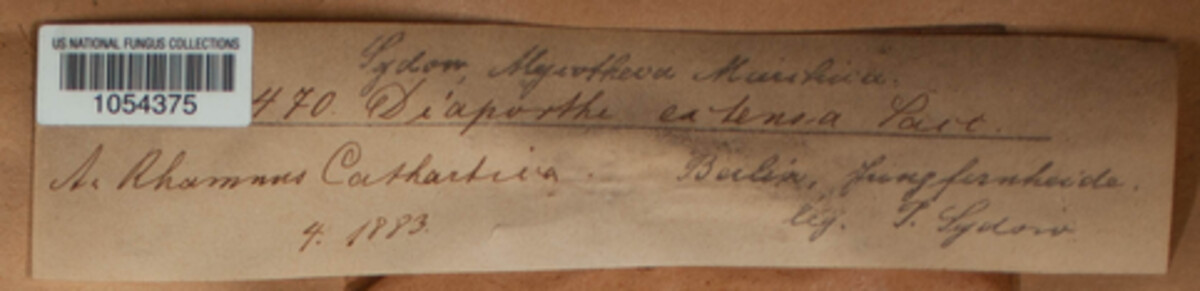 US NATIONAL FUNGUS COLLECTIONS
1054375
Sydow, Mycotheca Marchica.
470. Diaporthe extensa Sacc.
A. Rhamnus Cathartica. Berlin, Jungfernheide.
4. 1883. leg. P. Sydow